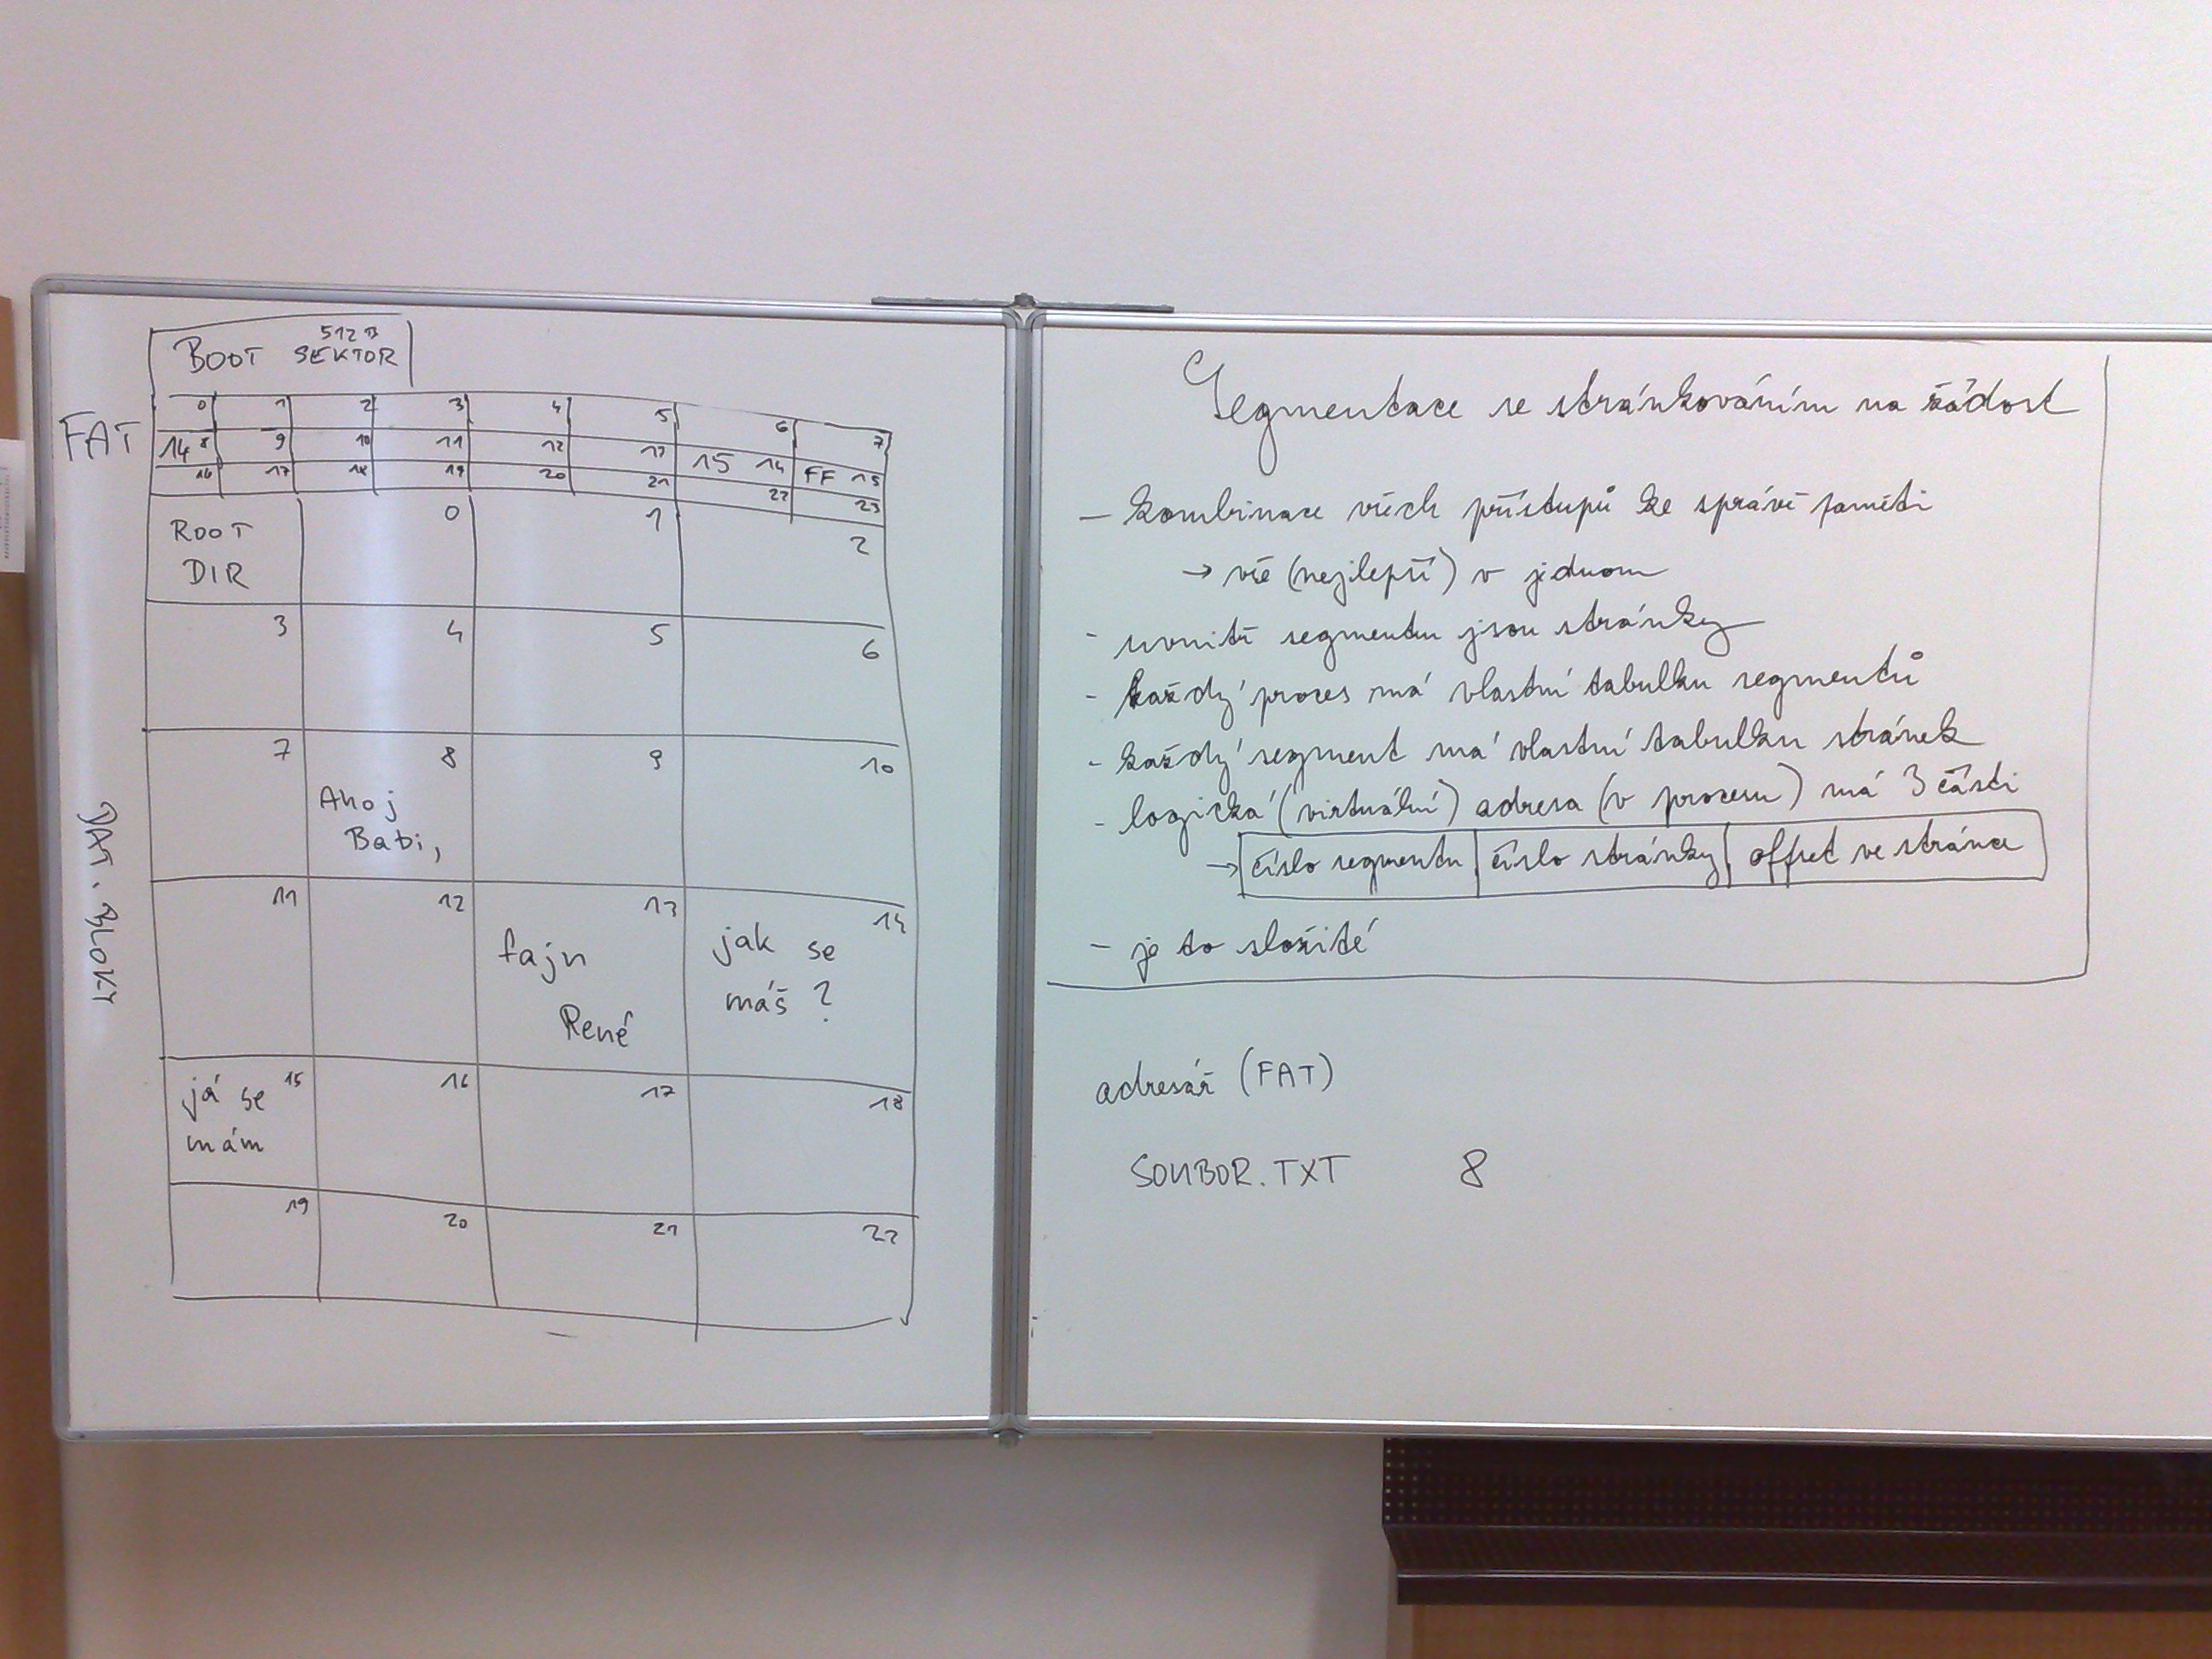 512 B
BOOT SEKTOR
FAT
0 1 2 3 4 5 6 7
14 8 9 10 11 12 13 15 14 FF 15
16 17 18 19 20 21 22 23
ROOT DIR 0 1 2
3 4 5 6
7 8 9 10
Ahoj
Babi,
11 12 13 14
fajn
René
jak se
máš ?
15 16 17 18
já se
mám
19 20 21 22
DAT. BLOKY
Segmentace se stránkováním na žádost
- kombinace všech přístupů ke správě paměti
→ vše (nejlepší) v jednom
- uvnitř segmentu jsou stránky
- každý proces má vlastní tabulku segmentů
- každý segment má vlastní tabulku stránek
- logická (virtuální) adresa (v procesu) má 3 části
→ číslo segmentu číslo stránky offset ve stránce
- je to složité
adresář (FAT)
SOUBOR.TXT 8